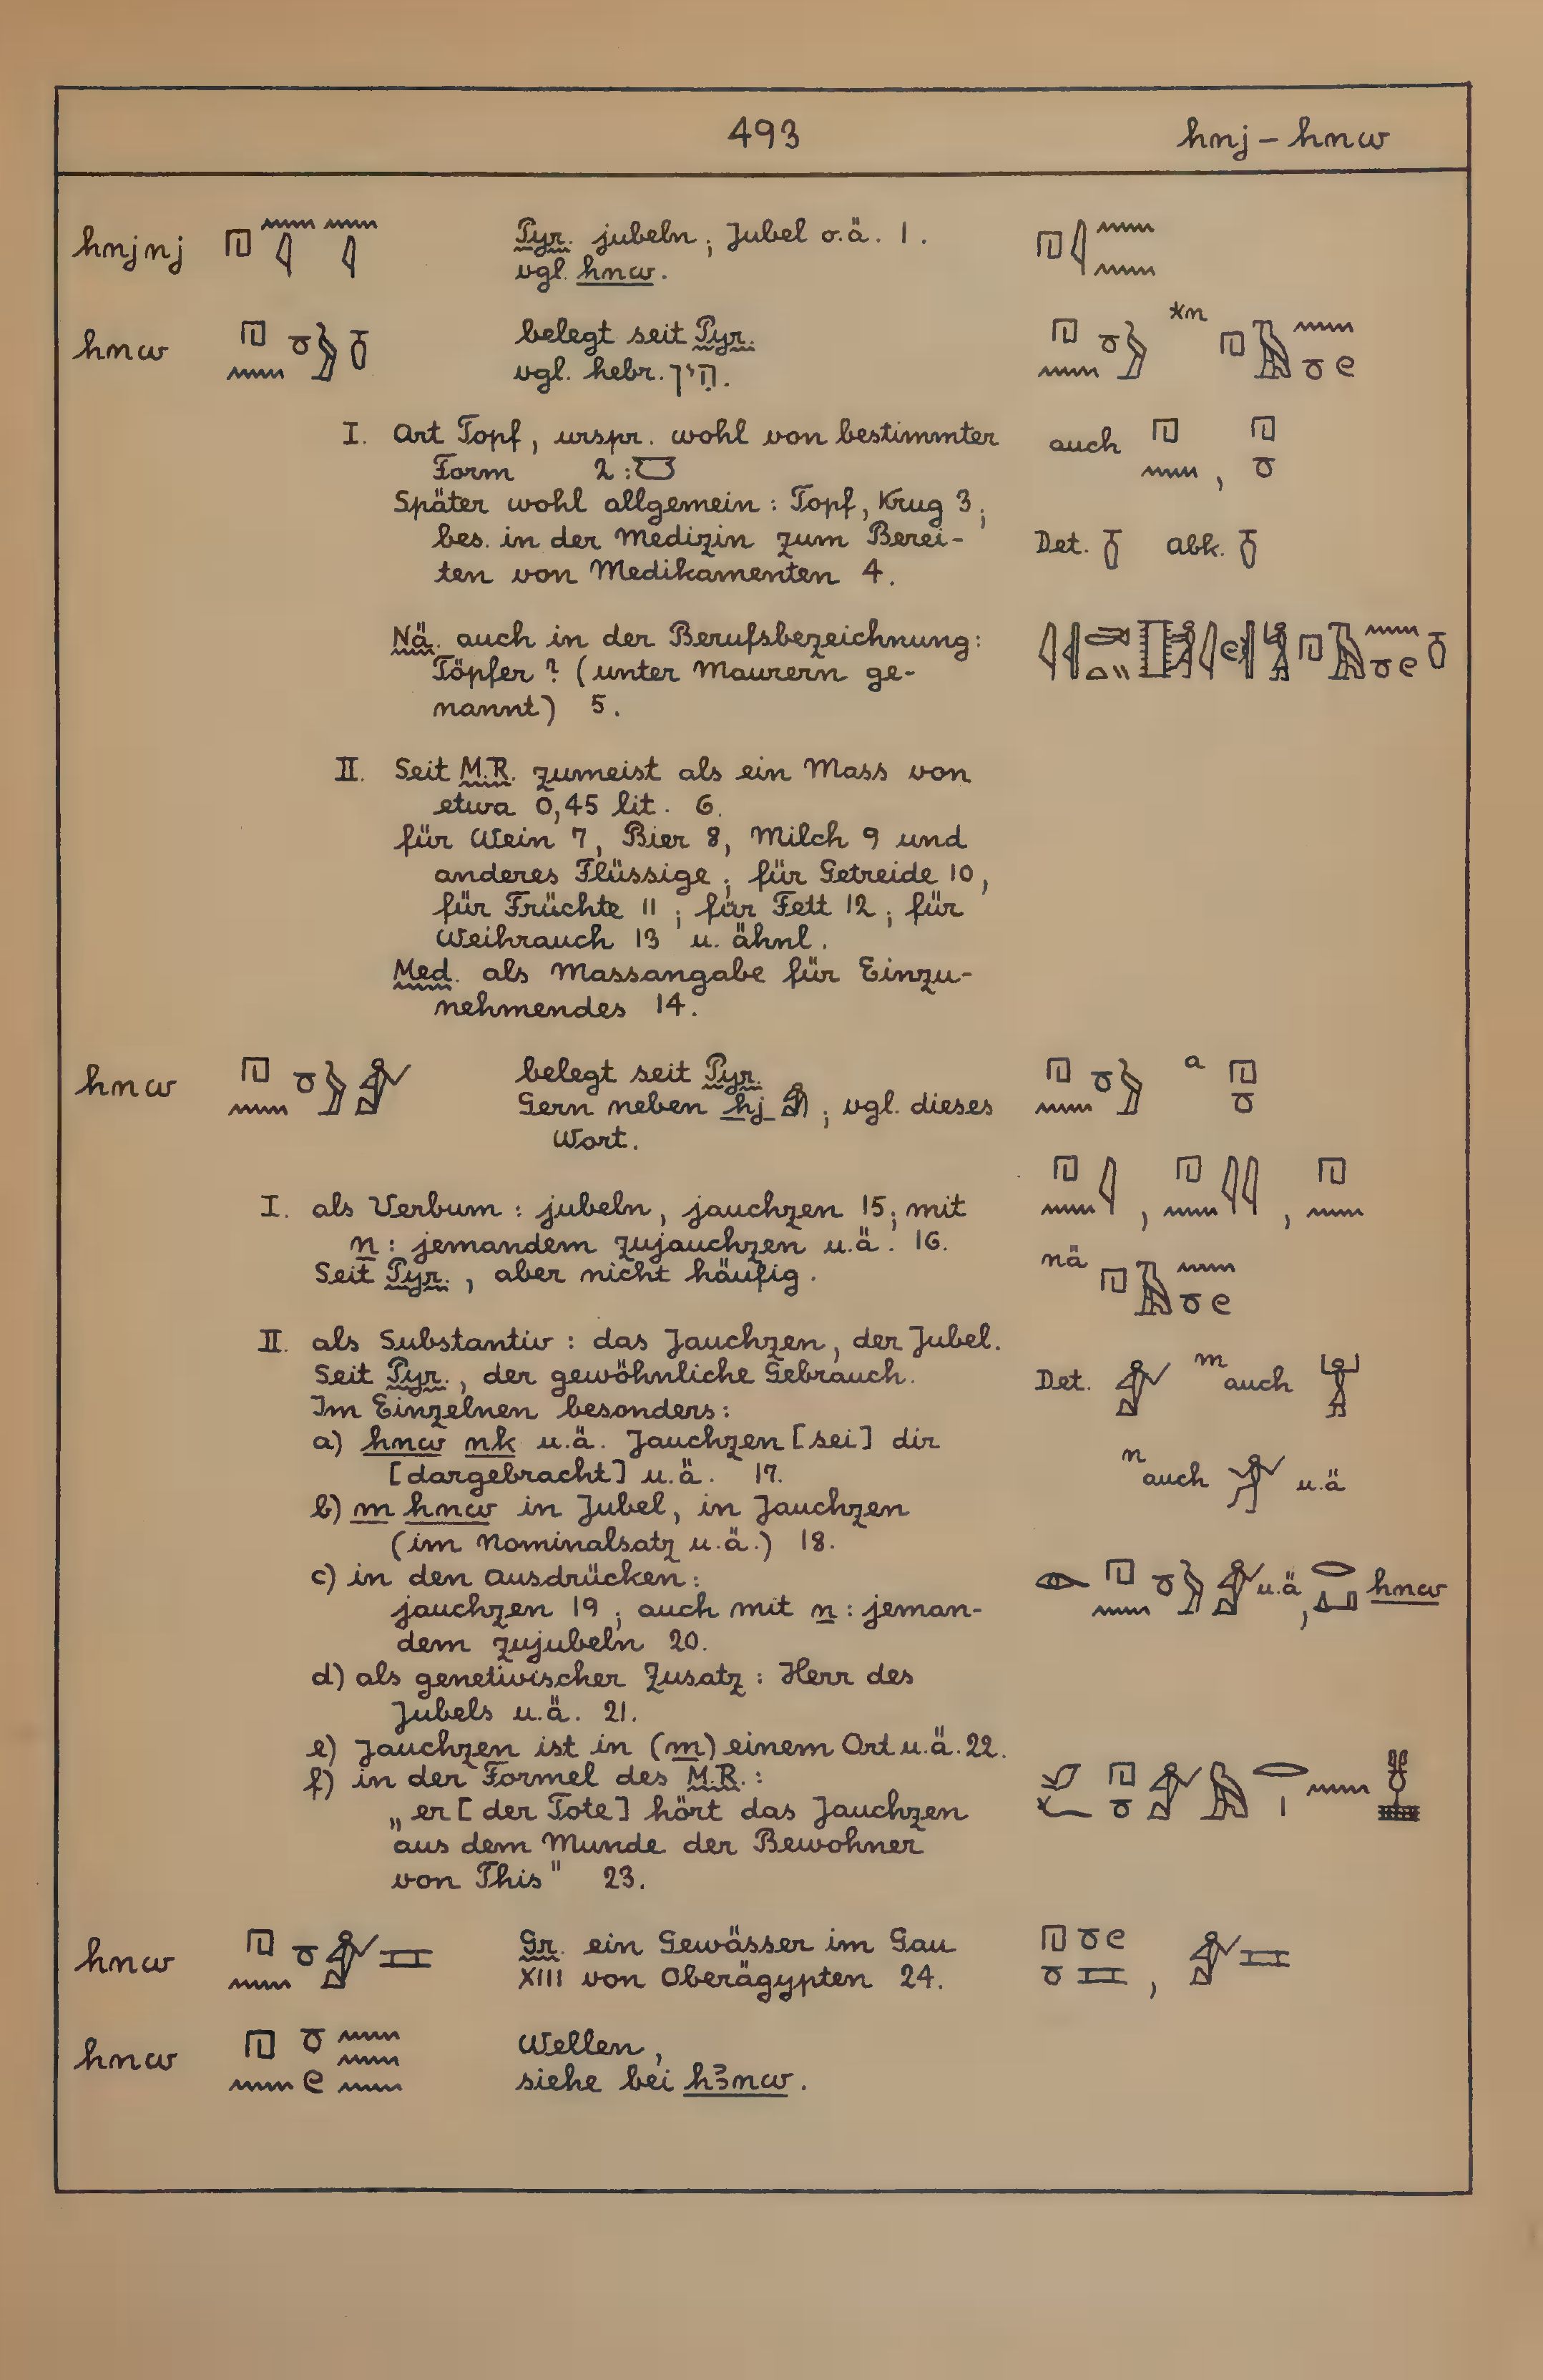 493 hnj – hnw
hnjnj Pyr. jubeln; Jubel o.ä. 1.
vgl. hnw.
hnw belegt seit Pyr. *n
vgl. hebr. הִין.
I. Art Topf, urspr. wohl von bestimmter auch ,
Form 2:
Später wohl allgemein: Topf, Krug 3;
bes. in der Medizin zum Berei- Det. Abk.
ten von Medikamenten 4.
Nä. auch in der Berufsbezeichnung:
Töpfer? (unter Maurern ge-
nannt) 5.
II. Seit M.R. zumeist als ein Mass von
etwa 0,45 lit. 6.
für Wein 7, Bier 8, Milch 9 und
anderes Flüssige; für Getreide 10,
für Früchte 11; für Fett 12; für
Weihrauch 13 u. ähnl.
Med. als Massangabe für Einzu-
nehmendes 14.
hnw belegt seit Pyr. a
Gern neben hj ; vgl. dieses
Wort.
I. als Verbum: jubeln, jauchzen 15; mit , ,
n: jemandem zujauchzen u.ä. 16.
Seit Pyr., aber nicht häufig. nä
II. als Substantiv: das Jauchzen, der Jubel.
Seit Pyr., der gewöhnliche Gebrauch. Det. m auch
Im Einzelnen besonders:
a) hnw nk u.ä. Jauchzen [sei] dir
[dargebracht] u.ä. 17. n auch u.ä
b) m hnw in Jubel, in Jauchzen
(im Nominalsatz u.ä.) 18.
c) in den Ausdrücken: u.ä, hnw
jauchzen 19; auch mit n: jeman-
dem zujubeln 20.
d) als genetivischer Zusatz: Herr des
Jubels u.ä. 21.
e) Jauchzen ist in (m) einem Ort u.ä. 22.
f) in der Formel des M.R.:
„er [der Tote] hört das Jauchzen
aus dem Munde der Bewohner
von This" 23.
hnw Gr. ein Gewässer im Gau
XIII von Oberägypten 24. ,
hnw Wellen,
siehe bei hꜣnw.